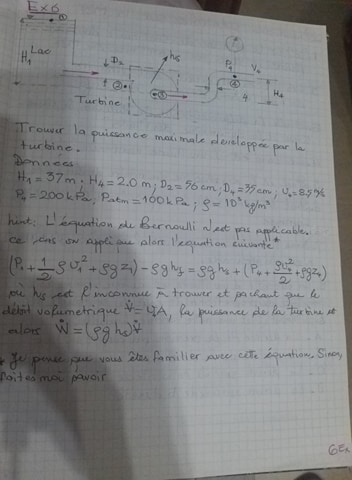 Ex6
①
Lac
H₁
D₂
hs
P₄
V₄
②
③
④
4
H₄
Turbine
Trouver la puissance maximale développée par la
turbine.
Données:
H₁ = 37m. H₄ = 2.0 m; D₂ = 56 cm; D₄ = 35 cm; U₄ = 8.5 m/s
P₄ = 200 kPa, Patm = 100 kPa; ρ = 10³ kg/m³
hint: L'équation de Bernoulli n'est pas applicable.
ce cas on applique alors l'equation suivante*
(P₁ + 1/2 ρ U₁² + ρg z₁) - ρg hs = ρg h₂ + (P₄ + ρU₄²/2 + ρg z₄)
où hs est l'inconnue à trouver et sachant que le
débit volumetrique V̇ = U₄A, la puissance de la turbine est
alors Ẇ = (ρg hs)V̇
* Je pense que vous êtes familier avec cette équation. Sinon,
faites moi savoir
6Ex